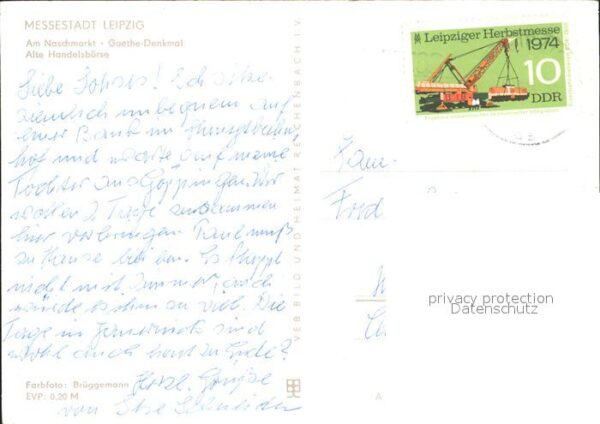 MESSESTADT LEIPZIG
Am Naschmarkt · Goethe-Denkmal
Alte Handelsbörse
Liebe! Ich sitze
ziemlich unbequem auf
einer Bank im
hof und warte auf meine
Tochter aus Göppingen. Wir
wollen 2 Tage zusammen
hier verbringen. Paul muß
zu Hause bleiben. Es klappt
nicht mit Zimmer, auch
würde es ihm zu viel. Die
Tage in sind
wohl auch bald zu Ende?
Herzl. Grüße
von Schneider
Farbfoto: Brüggemann
EVP: 0,20 M
VEB BILD UND HEIMAT REICHENBACH I. V.
A
Leipziger Herbstmesse
1974
10
DDR
Fam.
privacy protection
Datenschutz